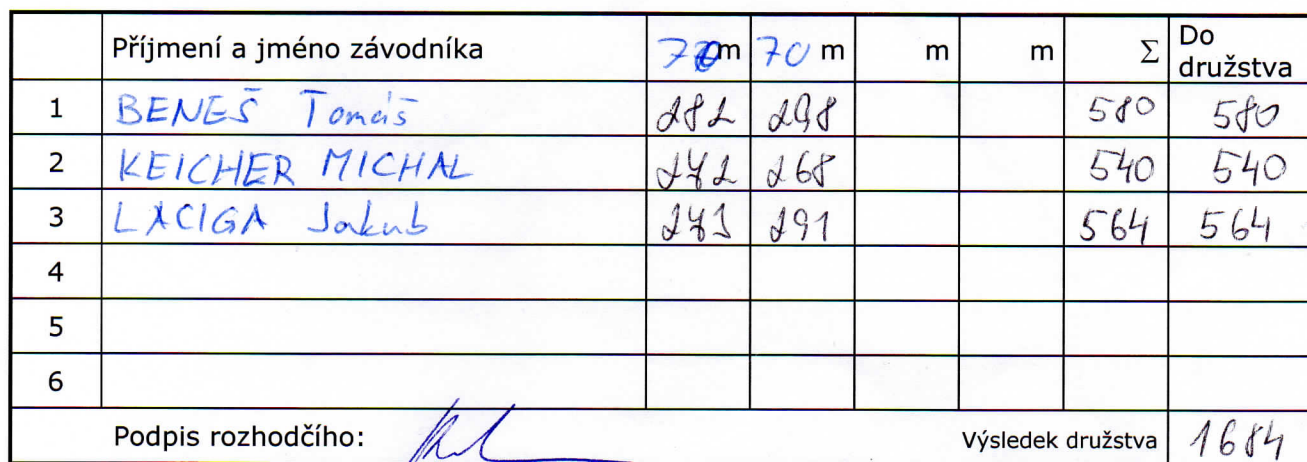 Příjmení a jméno závodníka 70 m 70 m m m Σ Do družstva
1 BENEŠ Tomáš 282 298 580 580
2 KEICHER MICHAL 272 268 540 540
3 LACIGA Jakub 273 291 564 564
4
5
6
Podpis rozhodčího: Výsledek družstva 1684